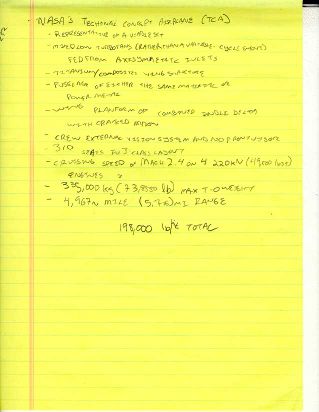 - NASA'S TECHNICAL CONCEPT AIRPLANE (TCA)
- REPRESENTATIVE OF A VIABLE SST
- MIXED LOW TURBOFANS (RATHER THAN A VARIABLE-CYCLE ENGINE)
FED FROM AXISYMMETRIC INLETS
- TITANIUM/COMPOSITES WING SURFACES
- FUSELAGE OF EITHER THE SAME MATERIAL OR
POWER METAL
- WING PLANFORM OF COMBINED DOUBLE DELTA
WITH CRANKED
- CREW EXTERNAL VISION SYSTEM AND NO FRONT VISOR
- 310 SEATS IN 3 CLASS LAYOUT
- CRUISING SPEED OF MACH 2.4 ON 4 220KN (49,000 lbst)
ENGINES
- 335,000 kg (73,8550 lb) MAX T-O WEIGHT
- 4,967 N MILE (5,716) MI RANGE
198,000 TOTAL